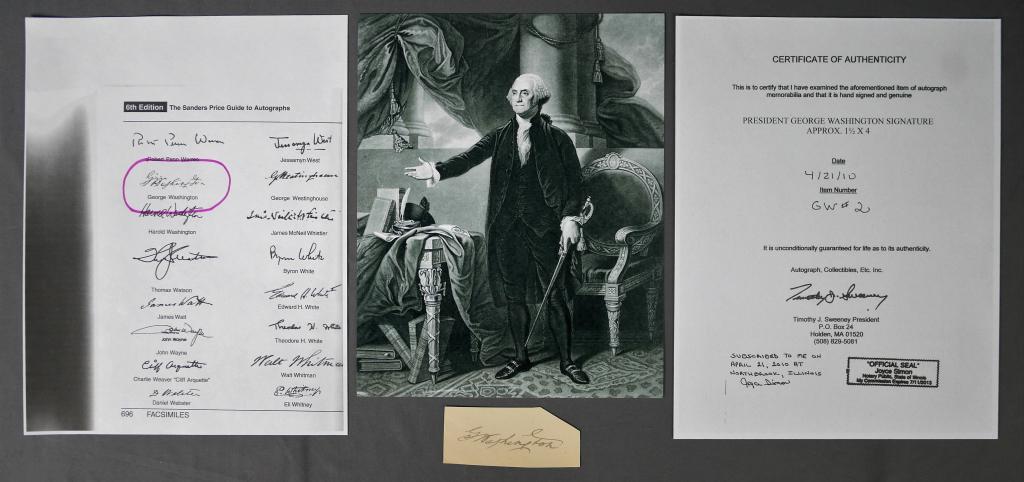 6th Edition The Sanders Price Guide to Autographs
Robert Penn Warren
Jessamyn West
Jessamyn West
G Washington
George Washington
George Westinghouse
Harold Washington
Harold Washington
James McNeil Whistler
Byron White
Thomas Watson
Byron White
James Watt
Edward H. White
James Watt
Edward H. White
John Wayne
Theodore H. White
JOHN WAYNE
John Wayne
Theodore H. White
Cliff Arquette
Walt Whitman
Charlie Weaver "Cliff Arquette"
Walt Whitman
D Webster
Daniel Webster
Eli Whitney
696 FACSIMILES
G Washington
CERTIFICATE OF AUTHENTICITY
This is to certify that I have examined the aforementioned item of autograph
memorabilia and that it is hand signed and genuine
PRESIDENT GEORGE WASHINGTON SIGNATURE
APPROX. 1½ X 4
Date
4/21/10
Item Number
GW # 2
It is unconditionally guaranteed for life as to its authenticity.
Autograph, Collectibles, Etc, Inc.
Timothy J. Sweeney
Timothy J. Sweeney President
P.O. Box 24
Holden, MA 01520
(508) 829-5081
SUBSCRIBED TO ME ON
APRIL 21, 2010 AT
NORTHBROOK, ILLINOIS
"OFFICIAL SEAL"
Joyce Simon
Notary Public, State of Illinois
My Commission Expires 7/11/2013